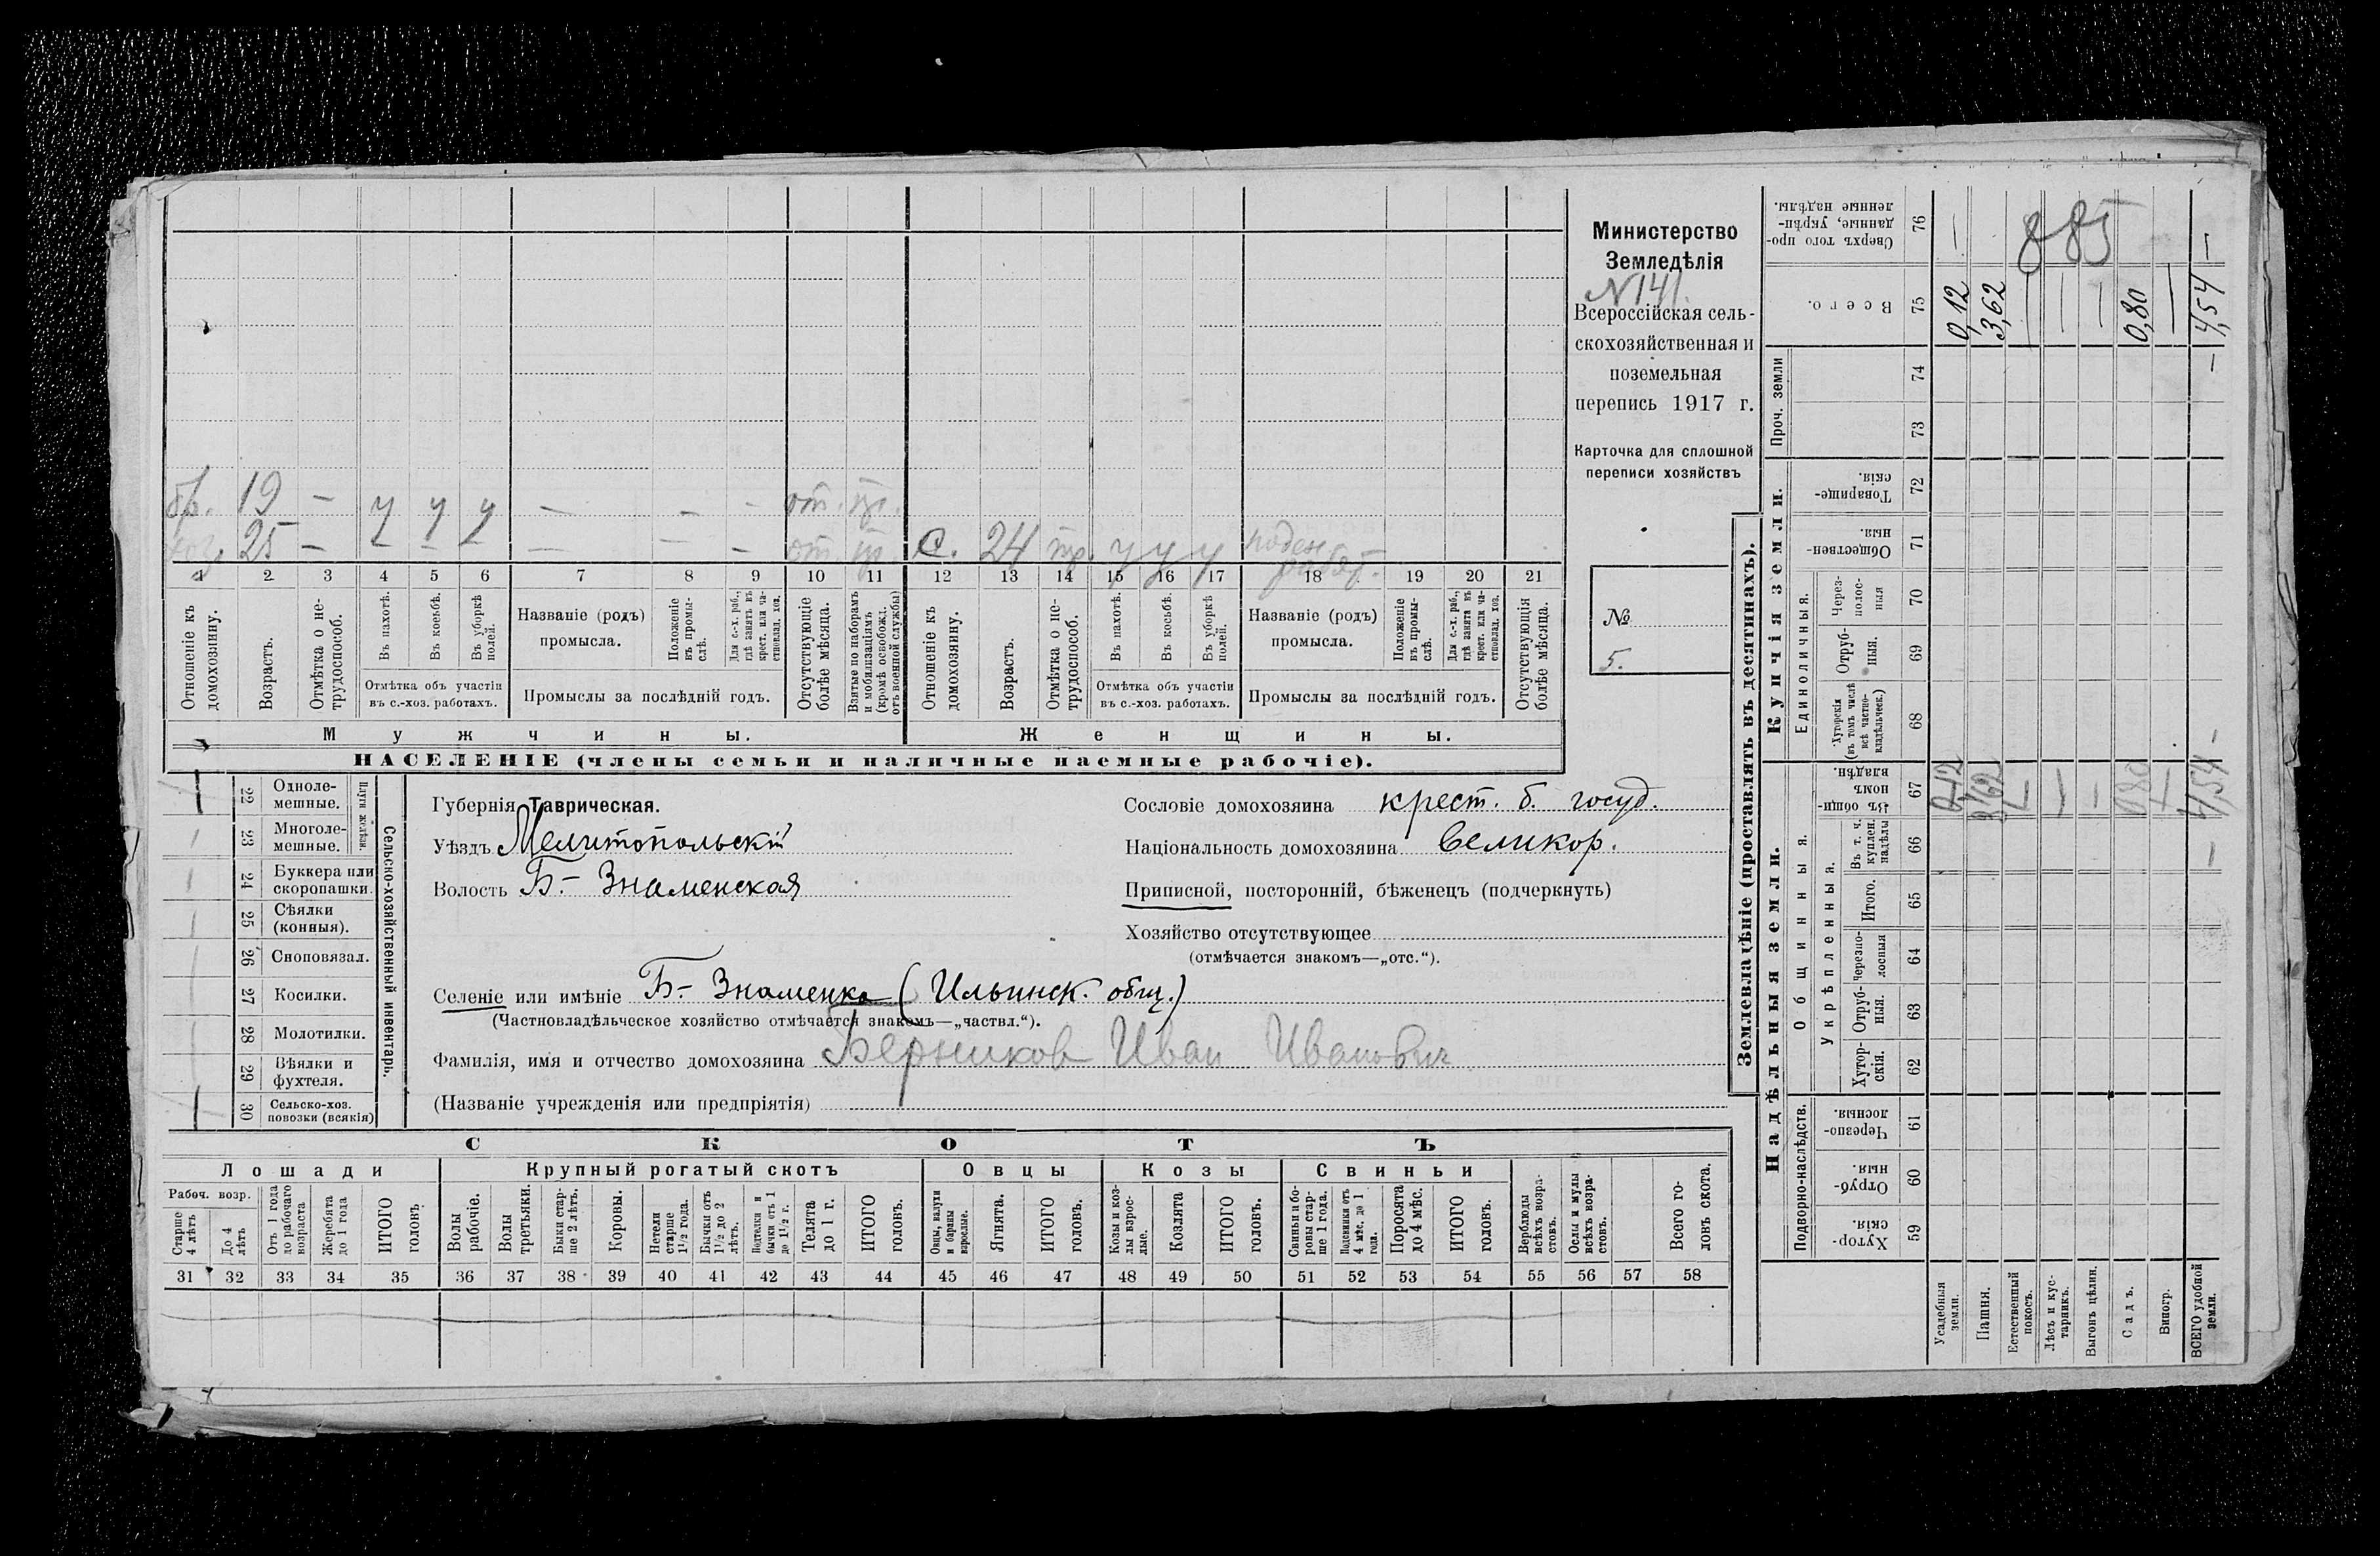 Министерство
Земледѣлія
N 141.
Всероссійская сель-
скохозяйственная и
поземельная
перепись 1917 г.
Карточка для сплошной
переписи хозяйствъ
№
5.
бр. 19 — у у у — — — от. пр.
хоз. 25 — — — — — — — от. пр. с. 24 пр. у у у поден
работ.
1 2 3 4 5 6 7 8 9 10 11 12 13 14 15 16 17 18 19 20 21
Отношеніе къ домохозяину.
Возрастъ.
Отмѣтка о не-трудоспособ.
Въ пахотѣ.
Въ косьбѣ.
Въ уборкѣ полей.
Отмѣтка объ участіи
въ с.-хоз. работахъ.
Названіе (родъ)
промысла.
Положеніе въ промы-слѣ.
Для с.-х. раб., гдѣ занятъ въ крест. или ча-стновлад. хоз.
Промыслы за послѣдній годъ.
Отсутствующіе болѣе мѣсяца.
Взятые по наборамъ и мобилизаціямъ (кромѣ освобожд. отъ военной службы)
Отношеніе къ домохозяину.
Возрастъ.
Отмѣтка о не-трудоспособ.
Въ пахотѣ.
Въ косьбѣ.
Въ уборкѣ полей.
Отмѣтка объ участіи
въ с.-хоз. работахъ.
Названіе (родъ)
промысла.
Положеніе въ промы-слѣ.
Для с.-х. раб., гдѣ занятъ въ крест. или ча-стновлад. хоз.
Промыслы за послѣдній годъ.
Отсутствующія болѣе мѣсяца.
Мужчины. Женщины.
НАСЕЛЕНІЕ (члены семьи и наличные наемные рабочіе).
22 Одноле-мешные.
23 Многоле-мешные.
Плуги желѣзн.
24 Буккера или скоропашки.
25 Сѣялки (конныя).
26 Сноповязал.
27 Косилки.
28 Молотилки.
29 Вѣялки и фухтеля.
30 Сельско-хоз. повозки (всякія)
Сельско-хозяйственный инвентарь.
Губернія Таврическая.
Уѣздъ Мелитопольскій
Волость Б.- Знаменская
Сословіе домохозяина крест. б. госуд.
Національность домохозяина великор.
Приписной, посторонній, бѣженецъ (подчеркнуть)
Хозяйство отсутствующее
(отмѣчается знакомъ—„отс.“).
Селеніе или имѣніе Б.- Знаменка (Ильинск. общ.)
(Частновладѣльческое хозяйство отмѣчается знакомъ—„частвл.“).
Фамилія, имя и отчество домохозяина Берников Иван Иванович
(Названіе учрежденія или предпріятія)
СКОТЪ
Лошади Крупный рогатый скотъ Овцы Козы Свиньи
Рабоч. возр.
Старше 4 лѣтъ
До 4 лѣтъ
Отъ 1 года до рабочаго возраста
Жеребята до 1 года
ИТОГО головъ
Волы рабочіе.
Волы третьяки.
Быки стар-ше 2 лѣтъ.
Коровы.
Нетели старше 1½ года.
Бычки отъ 1½ до 2 лѣтъ.
Подтелки и бычки отъ 1 до 1½ г.
Телята до 1 г.
ИТОГО головъ.
Овцы, валухи и бараны взрослые.
Ягнята.
ИТОГО головъ.
Козы и коз-лы взрос-лые.
Козлята
ИТОГО головъ.
Свиньи и бо-ровы стар-ше 1 года.
Подсвинки отъ 4 мѣс. до 1 года.
Поросята до 4 мѣс.
ИТОГО головъ.
Верблюды всѣхъ возра-стовъ.
Ослы и мулы всѣхъ возра-стовъ.
Всего го-ловъ скота.
31 32 33 34 35 36 37 38 39 40 41 42 43 44 45 46 47 48 49 50 51 52 53 54 55 56 57 58
Землевладѣніе (проставлять въ десятинахъ).
Надѣльныя земли. Купчія земли. Проч. земли
Подворно-наслѣдств.
Общинныя.
Укрѣпленныя.
Единоличныя.
Сверхъ того про-данные, укрѣп-ленные надѣлы. 76 — 885 —
Всего. 75 0,12 3,62 — — — 0,80 — 4,54
74
73
Товарище-скія. 72
Обществен-ныя. 71
Через-полос-ныя 70
Отруб-ныя. 69
Хуторскія (въ томъ числѣ всѣ частно-владѣльческ.) 68
Въ общин-номъ владѣн. 67 0,12 3,62 — — — 0,80 — 4,54
Въ т. ч. куплен. надѣлы 66
Итого. 65
Черезпо-лосныя 64
Отруб-ныя. 63
Хутор-скія. 62
Черезпо-лосныя. 61
Отруб-ныя. 60
Хутор-скія. 59
Усадебныя земли.
Пашня.
Естественный покосъ.
Лѣсъ и кус-тарникъ.
Выгонъ цѣлин.
Садъ.
Виногр.
ВСЕГО удобной земли.